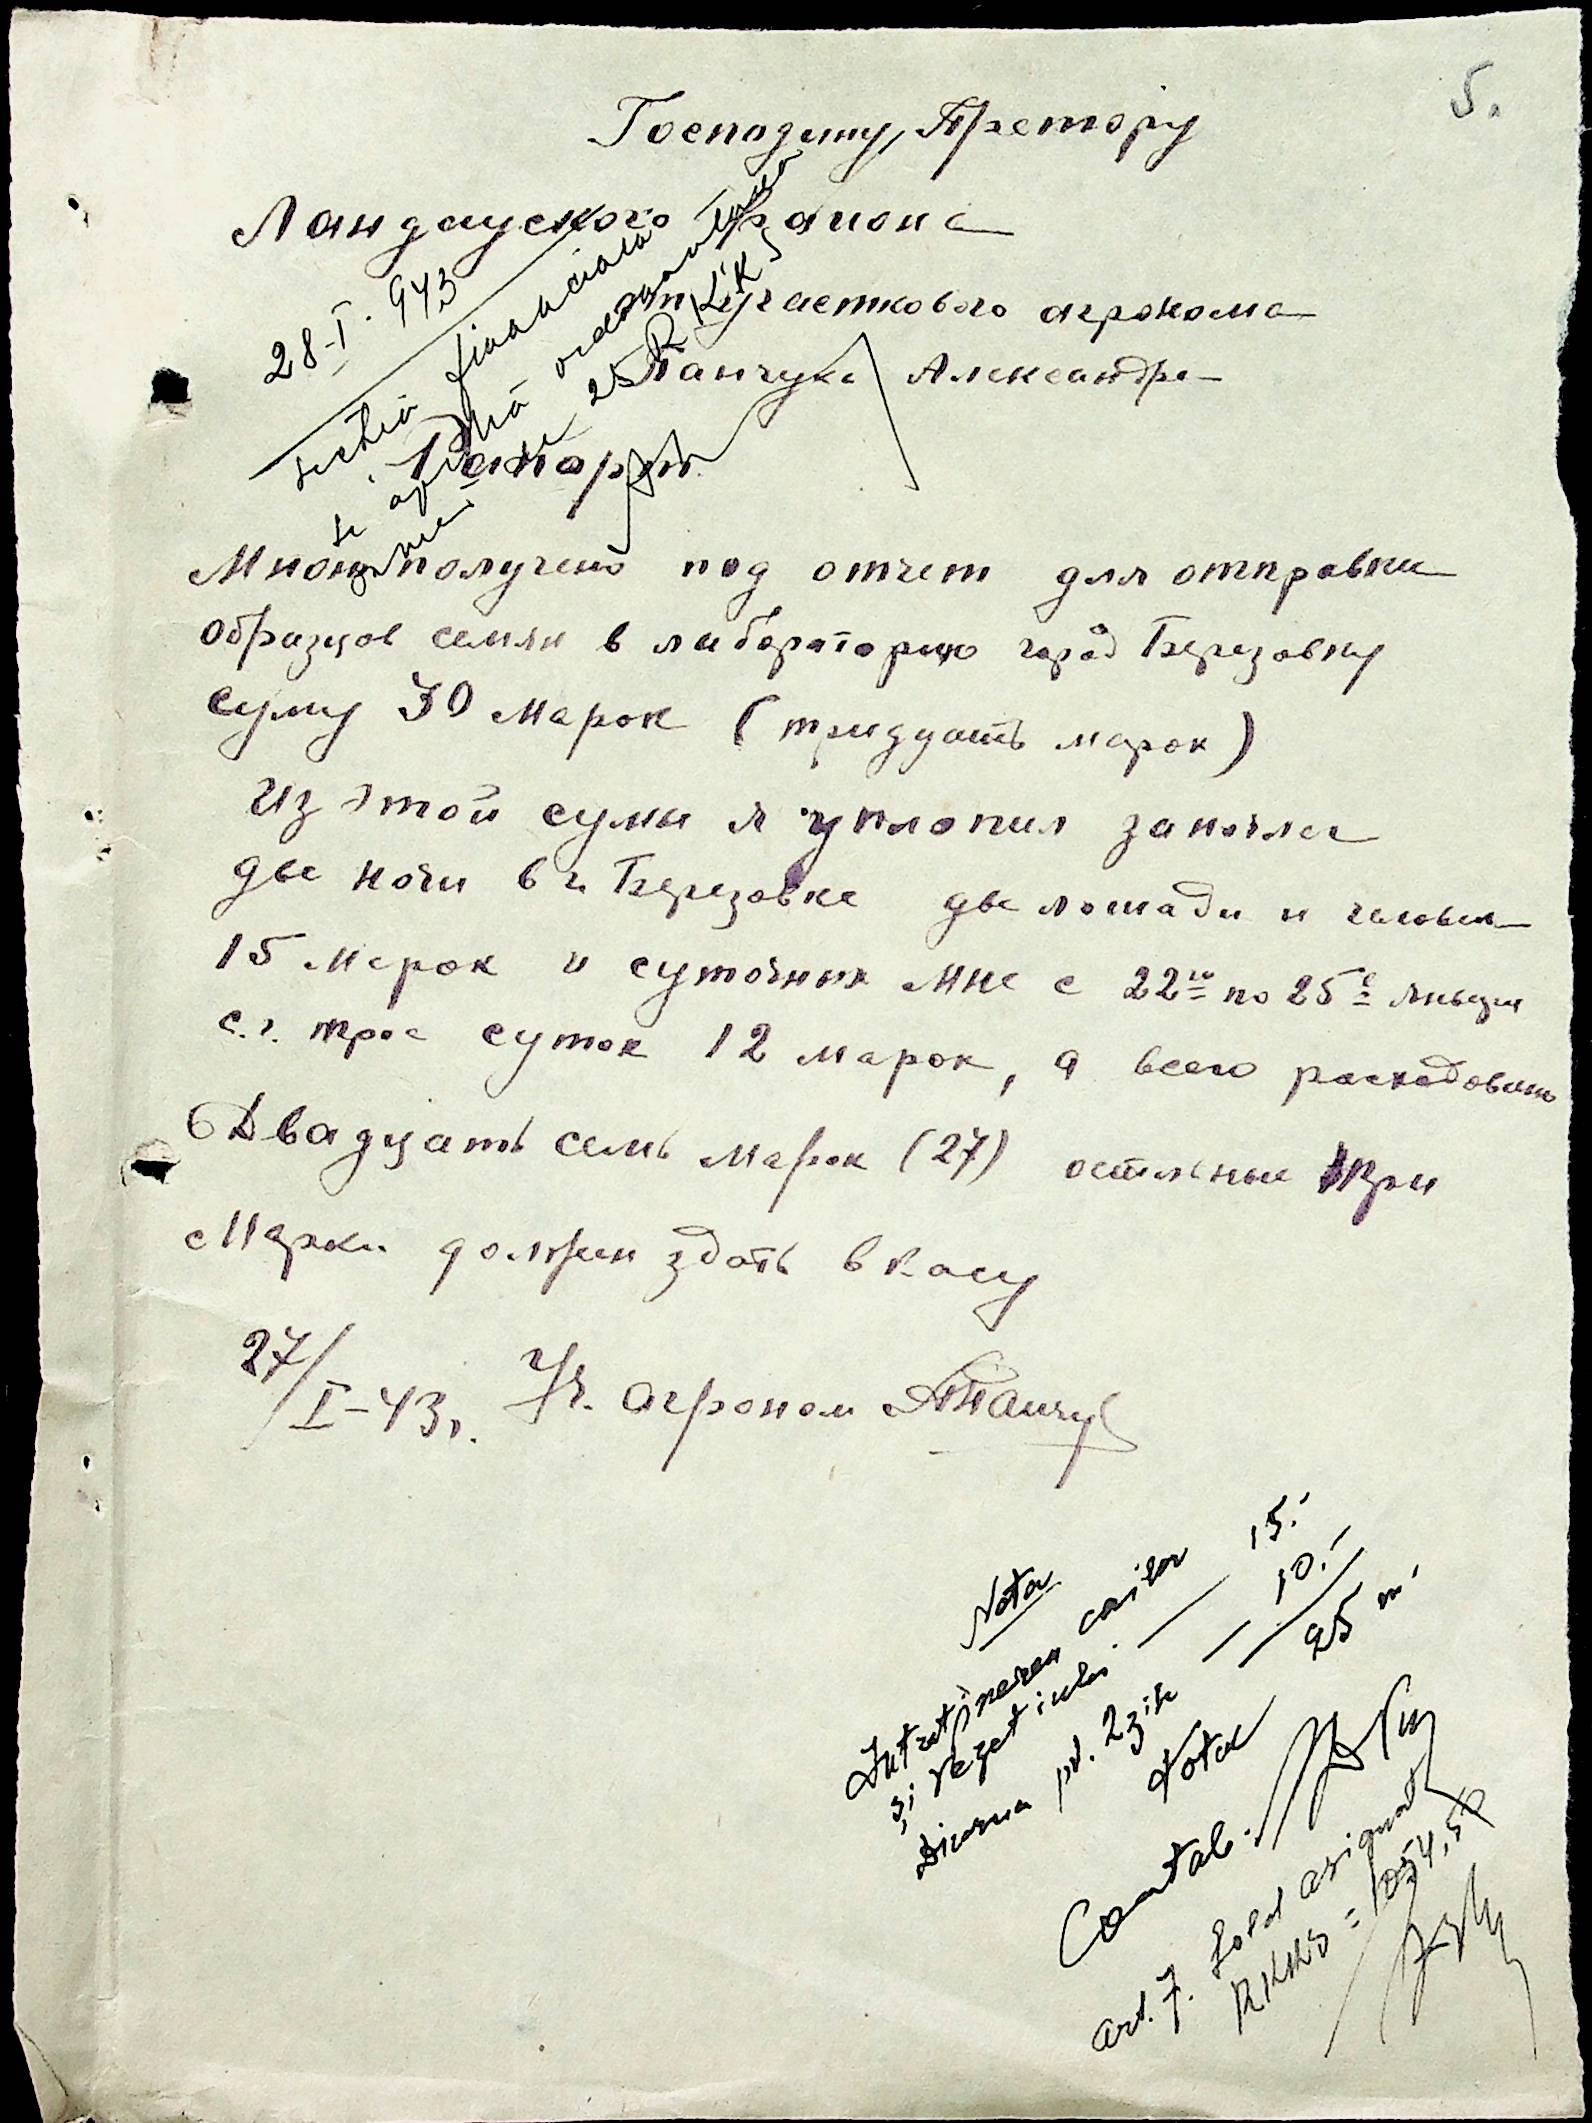 5.
Господину, Претору
Ландауского района
от участкового агронома
Панчука Александра
28-I-943
secția financiară
se aprobă ordonanțarea
sumei de 25 RKKS
Рапорт
Мною получено под отчет для отправки
образцов семян в лабораторию город Березовку
суму 30 марок (тридцать марок)
Из этой сумы я уплопил за ночлег
две ночи в г. Березовке две лошади и человек
15 марок и суточных мне с 22го по 25е января
с.г. трое суток 12 марок, а всего расходовано
Двадцать семь марок (27) остальные три
марки должен здать в касу
27/I-43г. Уч. агроном АПанчук
Nota
Intreținerea cailor
și vezetiului — 15.-
Diurna pt. 2 zile — 10.-
Total 25 m.
Contabil
art. 7. Sold asignat
RKKS = 1054,50